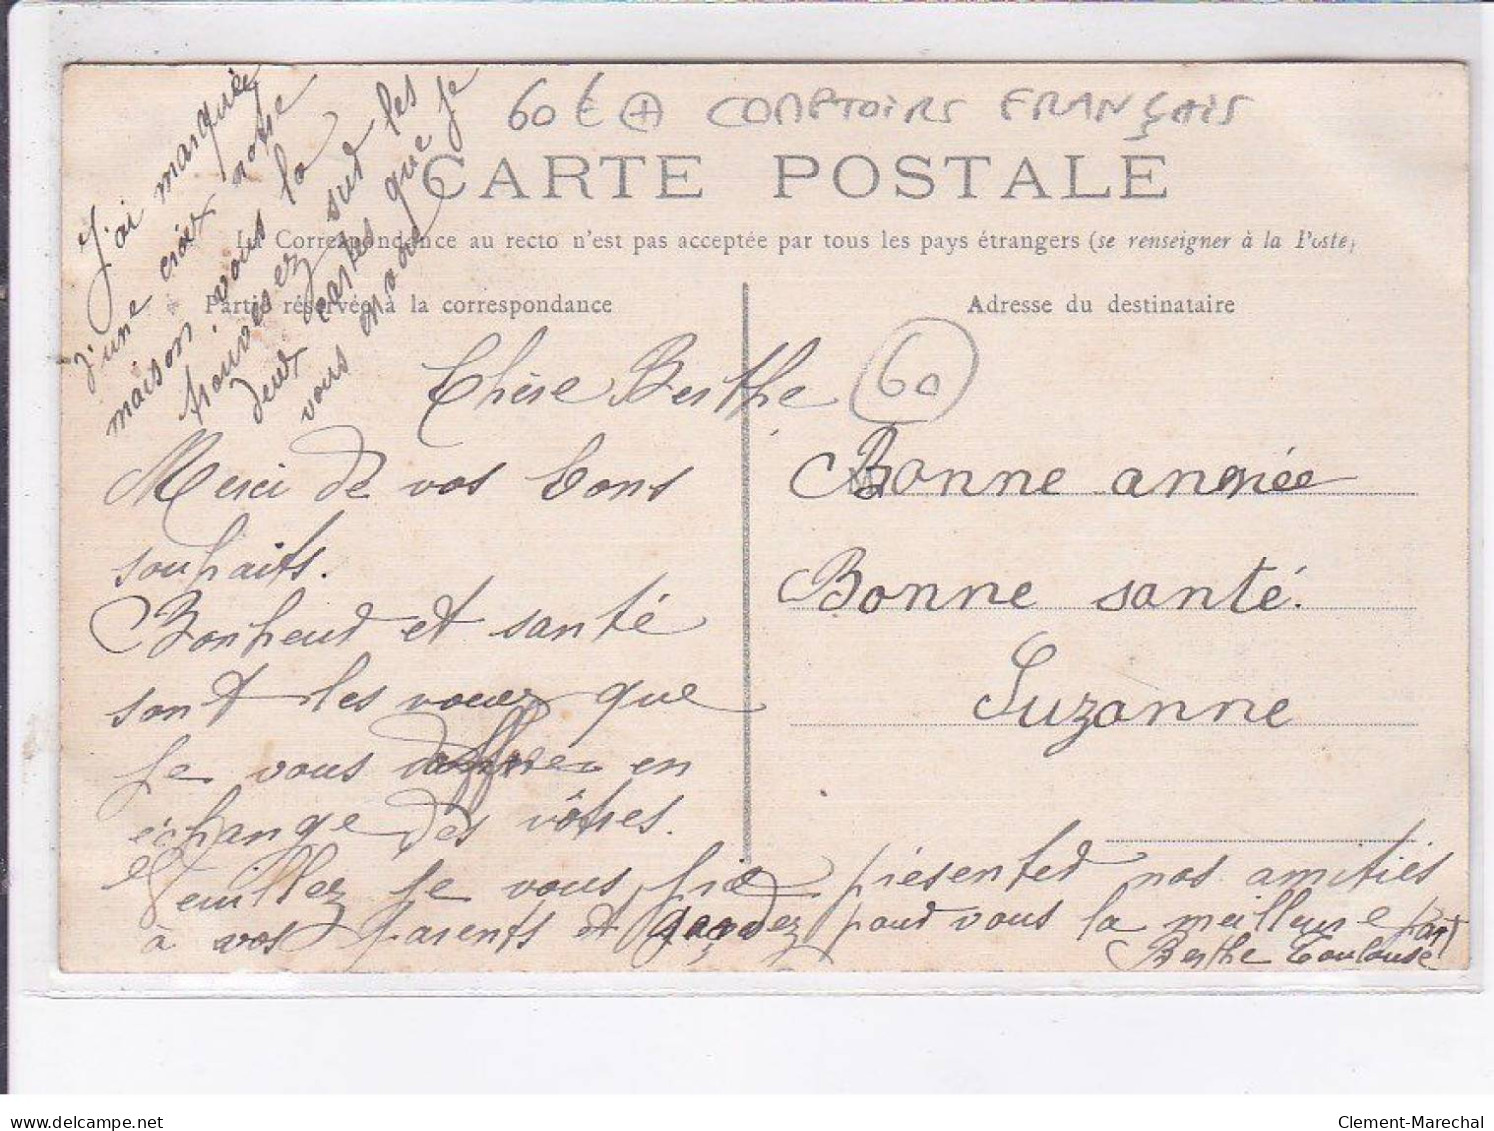 60€ + COMPTOIRS FRANÇAIS
CARTE POSTALE
La Correspondance au recto n'est pas acceptée par tous les pays étrangers (se renseigner à la Poste)
Partie réservée à la correspondance
Adresse du destinataire
J'ai marquée
d'une croix notre
maison vous la
trouverez sur les
deux cartes que je
vous envoie
60
Chère Berthe
Merci de vos bons
souhaits.
Bonheur et santé
sont les voeux que
je vous offre en
échange des vôtres.
Veuillez je vous prie présenter nos amitiés
à vos parents et gardez pour vous la meilleure part
Berthe Toulouse
Bonne année
Bonne santé.
Suzanne
delcampe.net
Clement-Marechal